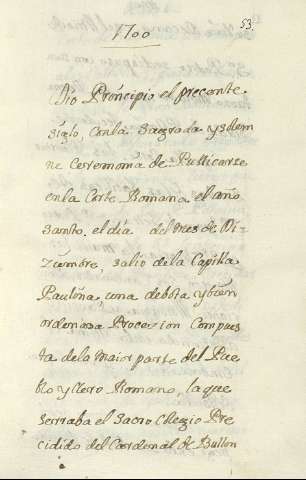 53.
1700
Dio Principio el precente
siglo, con la Sagrada y solem
ne Ceremonia de Publicarse
en la Corte Romana el año
Santo. el día del mes de Di-
ziembre, salio de la Capilla
Paulina, una debota y bien
ordenada Procezion Compues
ta de la maior parte del Pue
blo y Clero Romano, la que
serraba el Sacro Colegio Pre
cidido del Cardenal de Bullon